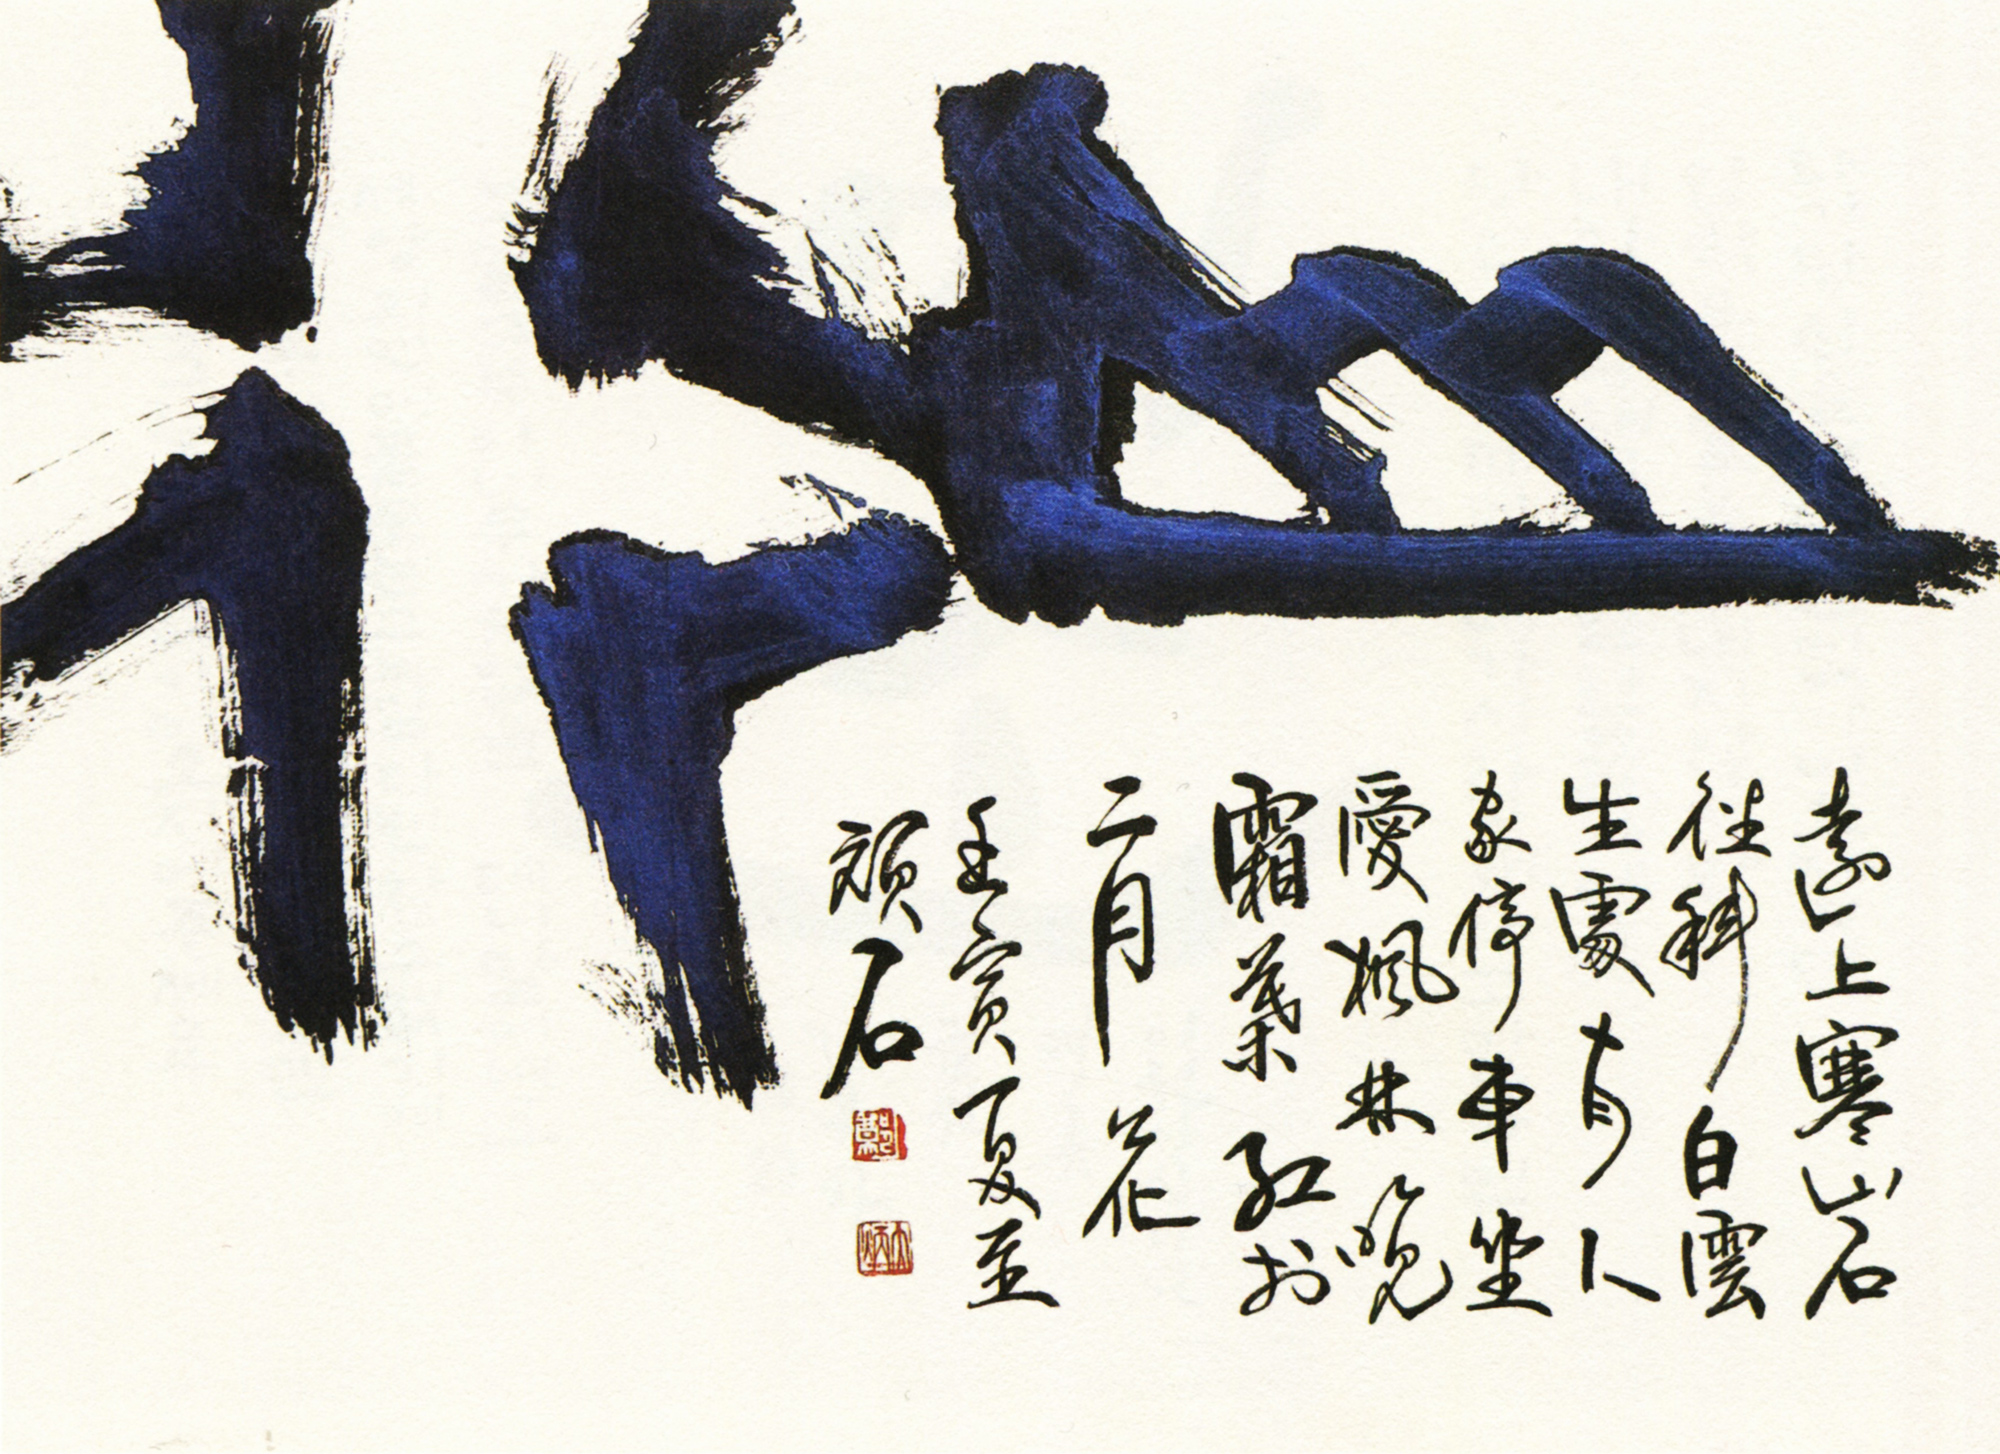 遠上寒山石
徑斜白雲
生處有人
家停車坐
愛楓林晚
霜葉紅於
二月花
壬寅夏至
頑石